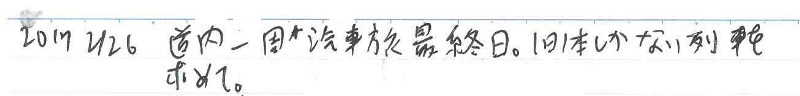 2017 2/26 道内一周汽車旅最終日。1日1本しかない列車を
求めて。